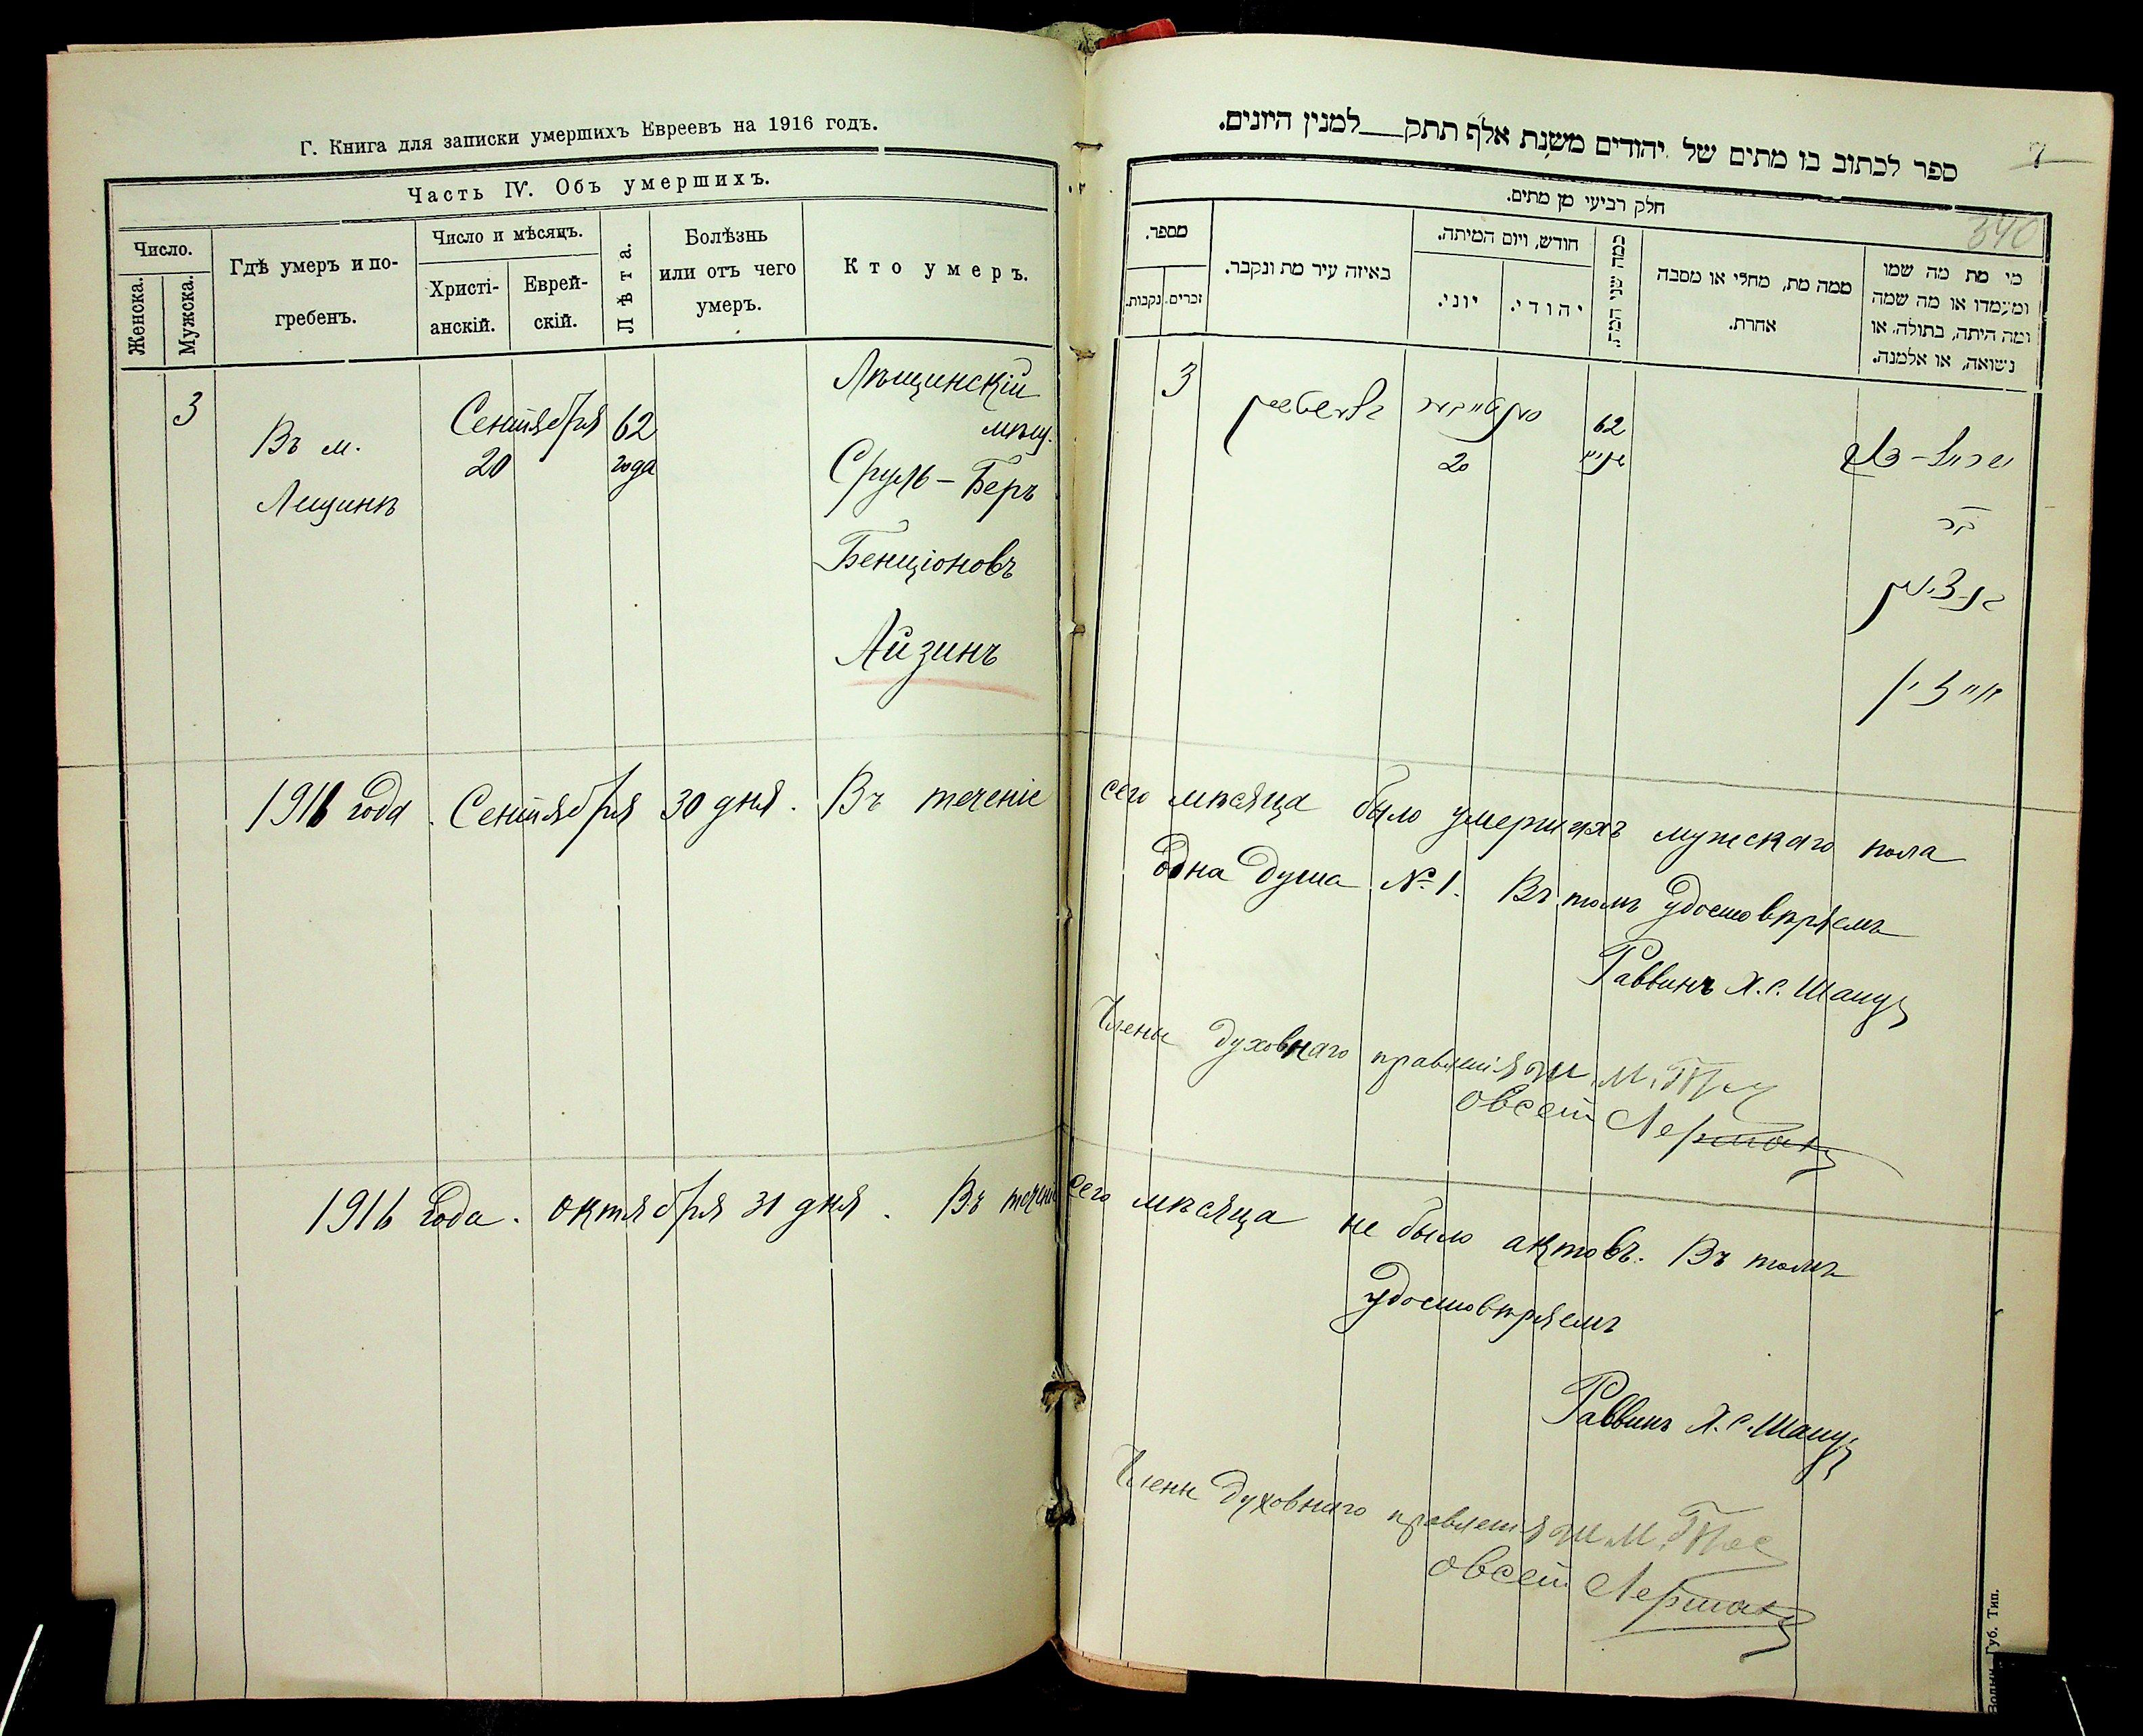 Г. Книга для записки умершихъ Евреевъ на 1916 годъ.
Часть IV. Объ умершихъ.
Число.
Женска.
Мужска.
Гдѣ умеръ и по-
гребенъ.
Число и мѣсяцъ.
Христі-
анскій.
Еврей-
скій.
Лѣта.
Болѣзнь
или отъ чего
умеръ.
Кто умеръ.
3
Въ м.
Лещинѣ
Сентября
20
62
года
Лѣщинскій
мѣщ.
Сруль-Беръ
Бенціоновъ
Айзинъ
ספר לכתוב בו מתים של יהודים משנת אלף תתק למנין היונים.
7
340
חלק רביעי מן מתים.
מספר.
נקבות.
זכרים.
באיזה עיר מת ונקבר.
חודש, ויום המיתה.
יוני.
יהודי.
כמה שני המת.
ממה מת, מחלי או מסבה
אחרת.
מי מת מה שמו
ומעמדו או מה שמה
ומה היתה, בתולה, או
נשואה, או אלמנה.
3
20
62
ישראל-
בר
בן-ציון
אייזין
1916 года. Сентября 30 дня. Въ теченіе сего мѣсяца было умершихъ мужскаго пола
одна душа №1. Въ томъ удостовѣряемъ
Раввинъ Х.С.
Члены духовнаго правленія
Овсей
1916 года. октября 31 дня. Въ теченіе сего мѣсяца не было актовъ. Въ томъ
удостовѣряемъ
Раввинъ Х.С.
Члены духовнаго правленія
Овсей
Губ. Тип.